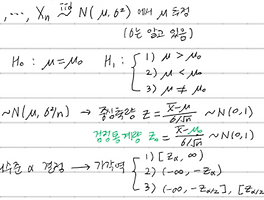 , ⋯, Xn iid~ N(μ, σ²) 에서 μ 추정
(σ는 알고 있음)
H₀ : μ=μ₀ H₁ : { 1) μ > μ₀
2) μ < μ₀
3) μ ≠ μ₀
~N(μ, σ²/n) → 중심축량 Z = (X̄-μ)/(σ/√n) ~ N(0,1)
검정통계량 Z₀ = (X̄-μ₀)/(σ/√n) ~ N(0,1)
수준 α 결정 → 기각역 { 1) [Zα, ∞)
2) (-∞, -Zα)
3) (-∞, -Zα/2], [Zα/2